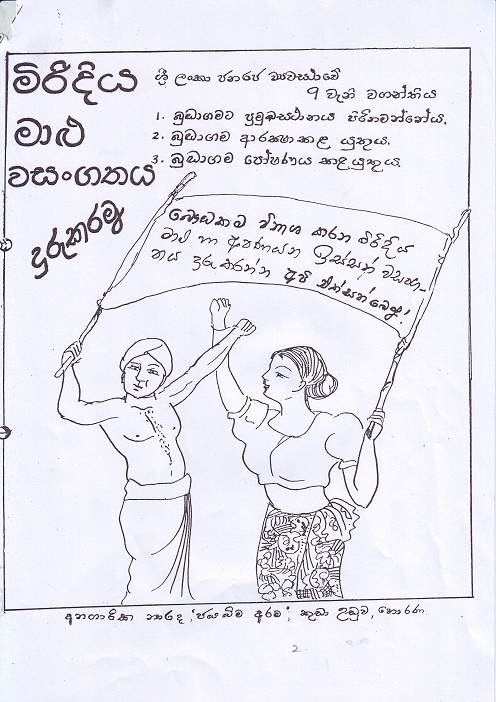 මිරිදිය
මාළු
වසංගතය
දුරුකරමු
ශ්‍රී ලංකා ජනරජ ව්‍යවස්ථාවේ
9 වැනි වගන්තිය
1. බුද්ධාගමට ප්‍රමුඛස්ථානය හිමිවන්නේය.
2. බුද්ධාගම ආරක්ෂා කළ යුතුය.
3. බුද්ධාගම පෝෂණය කළ යුතුය.
බෞද්ධකම විනාශ කරන මිරිදිය
මාළු හා අපණයන ඉස්සන් වසංග-
තය දුරු කරන්න අපි එක්සත් වෙමු!
අනගාරික නාරද, 'ජයබිම අරම', කුඩා උඩුව, හොරණ
2